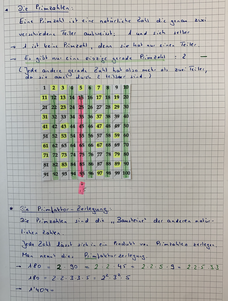 Die Primzahlen:
Eine Primzahl ist eine natürliche Zahl die genau zwei
verschiedene Teiler aufweist; 1 und sich selbst
→ 1 ist keine Primzahl, denn sie hat nur einen Teiler.
→ Es gibt nur eine einzige gerade Primzahl: 2
(Jede andere gerade Zahl hat also mehr als zwei Teiler,
da sie auch durch 2 teilbar sind)
1 2 3 4 5 6 7 8 9 10
11 12 13 14 15 16 17 18 19 20
21 22 23 24 25 26 27 28 29 30
31 32 33 34 35 36 37 38 39 40
41 42 43 44 45 46 47 48 49 50
51 52 53 54 55 56 57 58 59 60
61 62 63 64 65 66 67 68 69 70
71 72 73 74 75 76 77 78 79 80
81 82 83 84 85 86 87 88 89 90
91 92 93 94 95 96 97 98 99 100
Die Primfaktor-Zerlegung
Die Primzahlen sind die "Bausteine" der anderen natür-
lichen Zahlen
Jede Zahl lässt sich in ein Produkt von Primzahlen zerlegen.
Man nennt dies Primfaktorzerlegung
→ 180 = 2 · 90 = 2 · 2 · 45 = 2 · 2 · 5 · 9 = 2 · 2 · 5 · 3 · 3
180 = 2 · 2 · 3 · 3 · 5 = 2² · 3² · 5